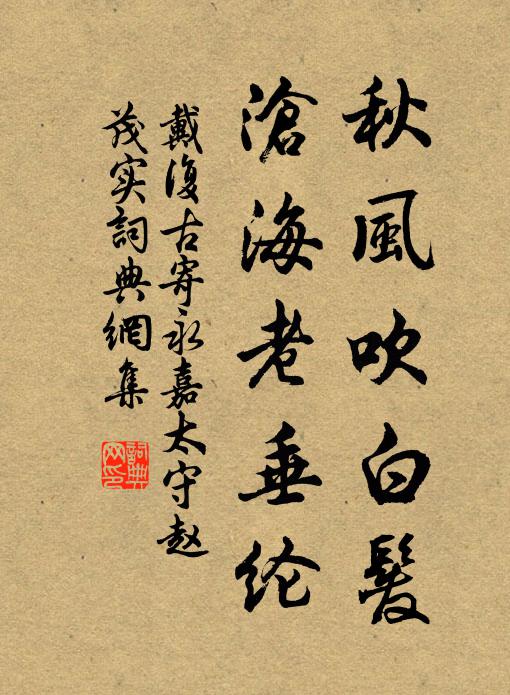 秋風吹白髮
滄海老垂纶
戴復古寄永嘉太守赵
茂实詞典網集
詞典
网印